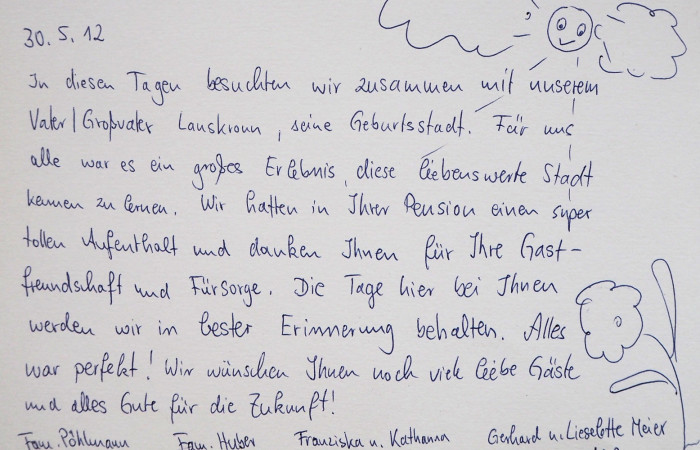 30. 5. 12
In diesen Tagen besuchten wir zusammen mit unserem
Vater/Großvater Lanskroun, seine Geburtsstadt. Für uns
alle war es ein großes Erlebnis, diese liebenswerte Stadt
kennen zu lernen. Wir hatten in Ihrer Pension einen super
tollen Aufenthalt und danken Ihnen für Ihre Gast-
freundschaft und Fürsorge. Die Tage hier bei Ihnen
werden wir in bester Erinnerung behalten. Alles
war perfekt! Wir wünschen Ihnen noch viele liebe Gäste
und alles Gute für die Zukunft!
Fam. Pöhlmann Fam. Huber Franziska u. Katharina Gerhard u. Lieselotte Meier